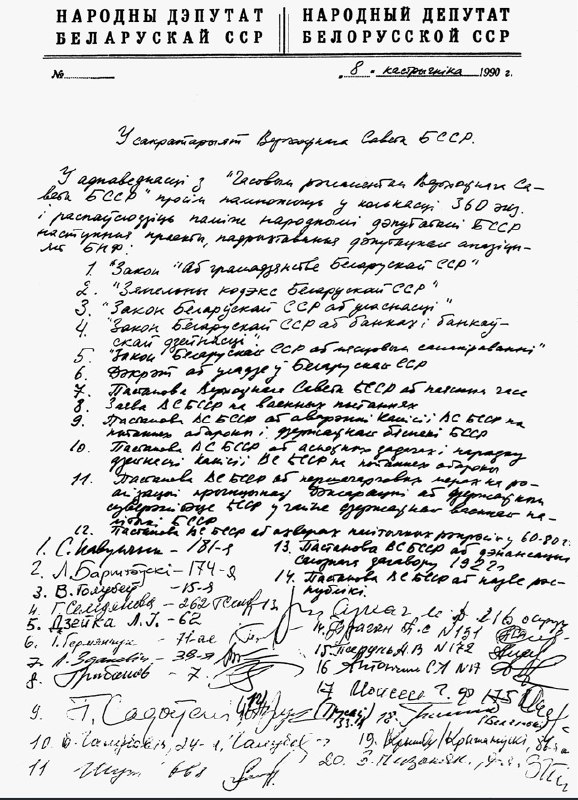 НАРОДНЫ ДЭПУТАТ
БЕЛАРУСКАЙ ССР
НАРОДНЫЙ ДЕПУТАТ
БЕЛОРУССКОЙ ССР
№
"8" кастрычніка 1990 г.
У сакратарыят Вярхоўнага Савета БССР.
У адпаведнасці з "Часовым рэгламентам Вярхоўнага Са-
вета БССР" просім памножыць у колькасці 360 экз.
і распаўсюдзіць паміж народнымі дэпутатамі БССР
наступныя праекты, падрыхтаваныя дэпутацкай апазіцы-
яй БНФ:
1. "Закон "Аб грамадзянстве Беларускай ССР"
2. "Зямельны кодэкс Беларускай ССР"
3. "Закон Беларускай ССР аб уласнасці"
4. "Закон Беларускай ССР аб банках і банкаў-
скай дзейнасці"
5. "Закон Беларускай ССР аб мясцовым самакіраванні"
6. Дэкрэт аб уладзе ў Беларускай ССР
7. Пастанова Вярхоўнага Савета БССР аб часе
8. Заява ВС БССР па ваенных пытаннях
9. Пастанова ВС БССР аб камісіі ВС БССР па
пытаннях абароны і дзяржаўнай бяспекі БССР
10. Пастанова ВС БССР аб асноўных задачах і парадку
дзейнасці камісіі ВС БССР па пытаннях абароны
11. Пастанова ВС БССР аб першачарговых мерах па рэ-
алізацыі Дэкларацыі аб дзяржаўным
суверэнітэце БССР у галіне дзяржаўнай
БССР
12. Пастанова ВС БССР аб 60-80 г.
13. Пастанова ВС БССР аб дэнансацыі
саюзнага дагавору 1922 г.
14. Пастанова ВС БССР аб назве рэс-
публікі
1. С. Навумчык - 181-я
2. Л. Баршчэўскі - 174-я
3. В. Голубеў - 15-я
4. Г. Сямдзянава - 262
5. Дзейка Л.І. - 62
6. І. Германчук - 71-ае
7. Л. Зданевіч - 39-я
8. Грыбанаў - 7
9. П. Садоўскі
10. Галубовіч, 24-я
11. 66я
216 округ
14. Драган П.С N 131
15. А В N 172
16 Антончык С.А N 17
17 175
18.
19. Крыжаноўскі
20.